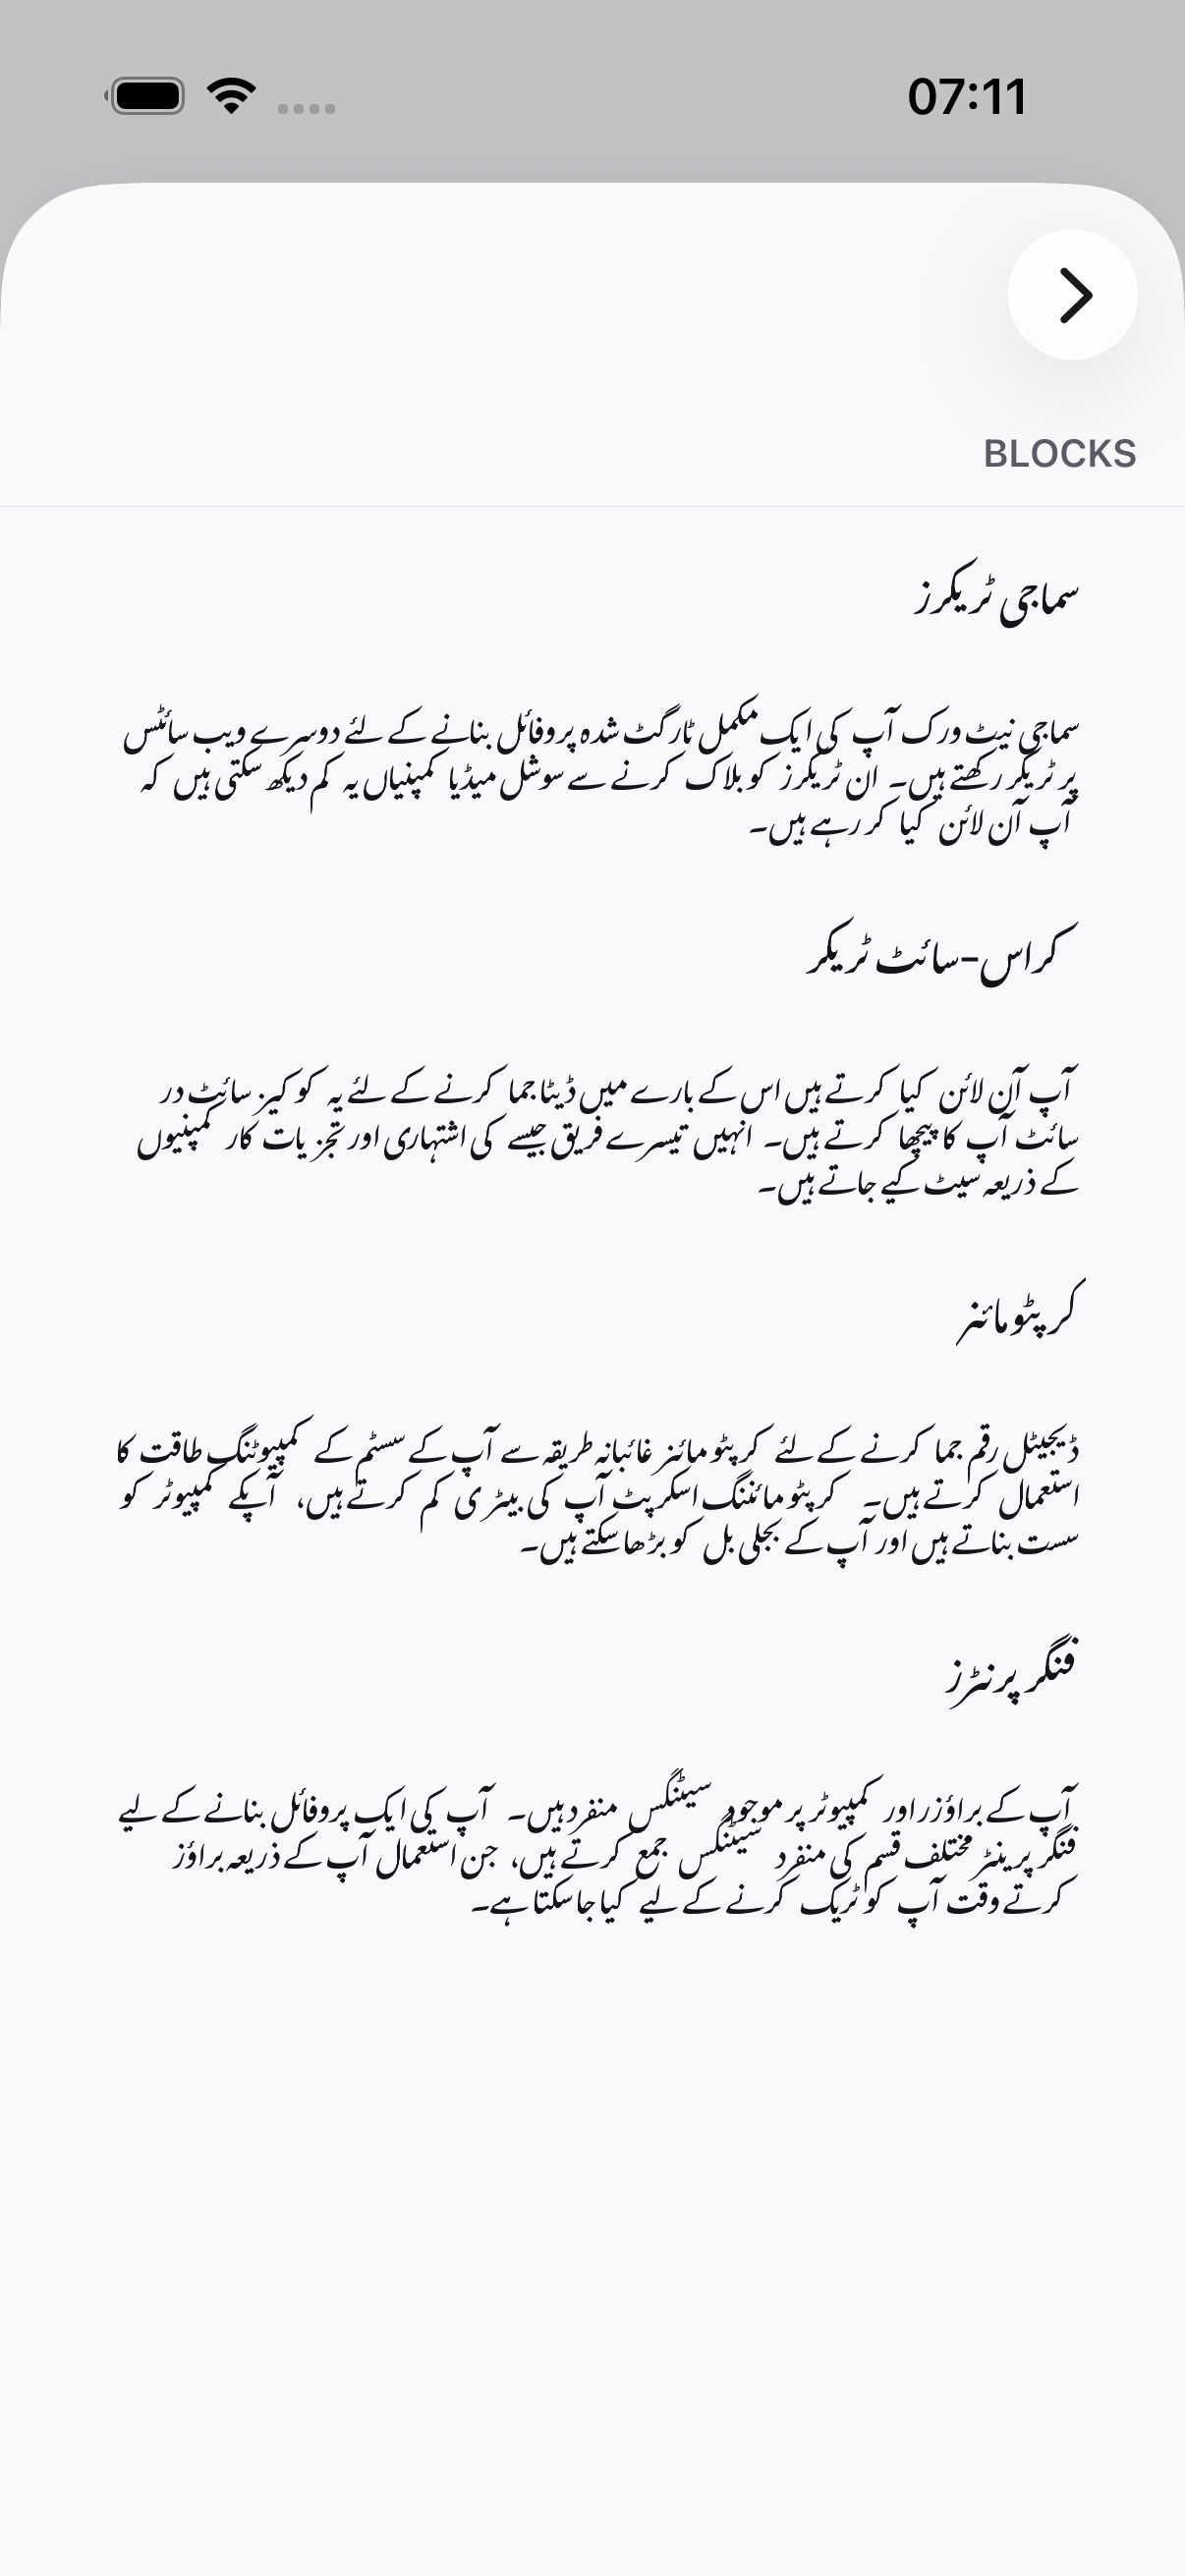 07:11
BLOCKS
سماجی ٹریکرز
سماجی نیٹ ورک آپ کی ایک مکمل ٹارگٹ شدہ پروفائل بنانے کے لئے دوسرے ویب سائٹس
پر ٹریکر رکھتے ہیں۔ ان ٹریکرز کو بلاک کرنے سے سوشل میڈیا کمپنیاں یہ کم دیکھ سکتی ہیں کہ
آپ آن لائن کیا کر رہے ہیں۔
کراس-سائٹ ٹریکر
آپ آن لائن کیا کرتے ہیں اس کے بارے میں ڈیٹا جما کرنے کے لئے یہ کوکیز سائٹ در
سائٹ آپ کا پیچھا کرتے ہیں۔ انہیں تیسرے فریق جیسے کی اشتہاری اور تجزیات کار کمپنیوں
کے ذریعہ سیٹ کیے جاتے ہیں۔
کرپٹومائنر
ڈیجیٹل رقم جما کرنے کے لئے کرپٹو مائنز غائبانہ طریقہ سے آپ کے سسٹم کے کمپیوٹنگ طاقت کا
استعمال کرتے ہیں۔ کرپٹو مائننگ اسکرپٹ آپ کی بیٹری کم کرتے ہیں، آپکے کمپیوٹر کو
سست بناتے ہیں اور آپ کے بجلی بل کو بڑھا سکتے ہیں۔
فنگر پرنٹرز
آپ کے براؤزر اور کمپیوٹر پر موجود سیٹنگس منفرد ہیں۔ آپ کی ایک پروفائل بنانے کے لیے
فنگر پرینٹر مختلف قسم کی منفرد سیٹنگس جمع کرتے ہیں، جن استعمال آپ کے ذریعہ براؤز
کرتے وقت آپ کو ٹریک کرنے کے لیے کیا جا سکتا ہے۔